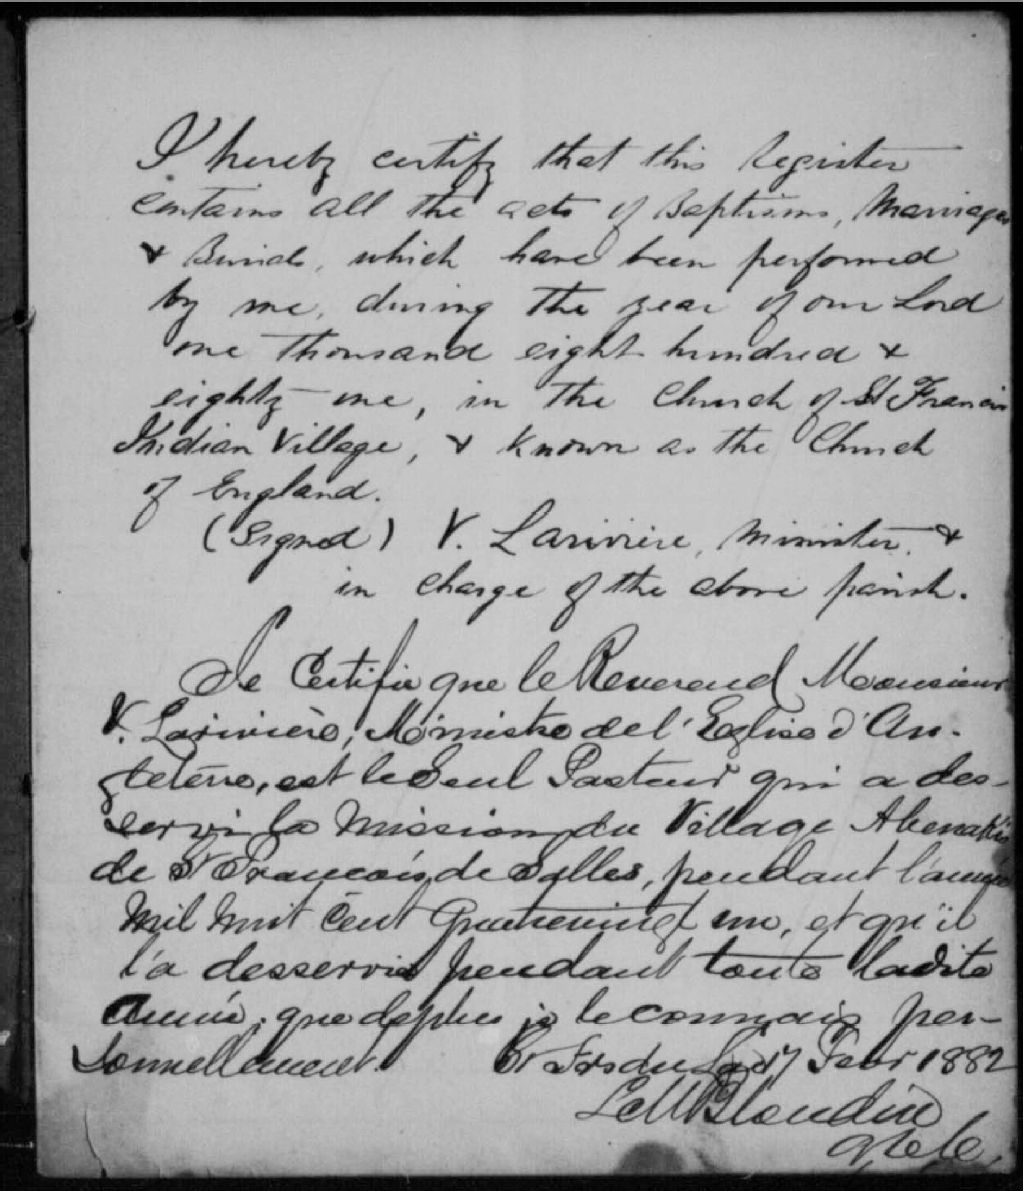 I hereby certify that this Register
contains all the acts of Baptisms, Marriages
& Burials, which have been performed
by me, during the year of our Lord
one thousand eight hundred &
eighty one, in the Church of St Francis
Indian Village, & known as the Church
of England.
(Signed) V. Lariviere, Minister &
in charge of the above parish.
Je Certifie que le Reverend Monsieur
V. Larivière, Ministre de l'Eglise d'An-
gleterre, est le Seul Pasteur qui a des-
servi la Mission du Village Abenakis
de St François de Salles, pendant l'année
Mil huit Cent Quatrevingt un, et qu'il
l'a desservie pendant toute ladite
Année; que de plus je le connais per-
sonnellement. St Frs du Lac 17 Fevr 1882
Blondin